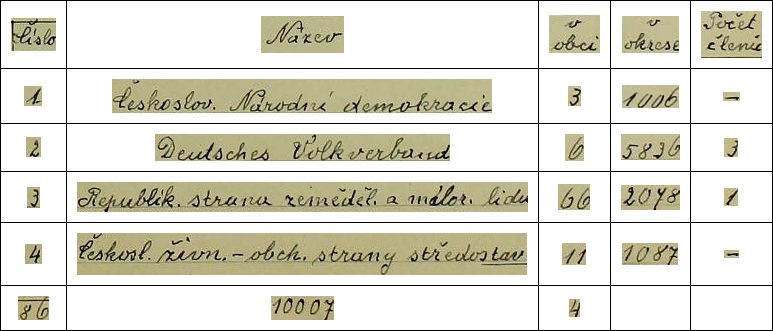 Číslo Název v obci v okrese Počet členů
1 Českoslov. Národní demokracie 3 1006 –
2 Deutsches Volkverband 6 5836 3
3 Republik. strana zeměděl. a málor. lidu 66 2078 1
4 Českosl. živn. – obch. strany středostav. 11 1087 –
86 10007 4